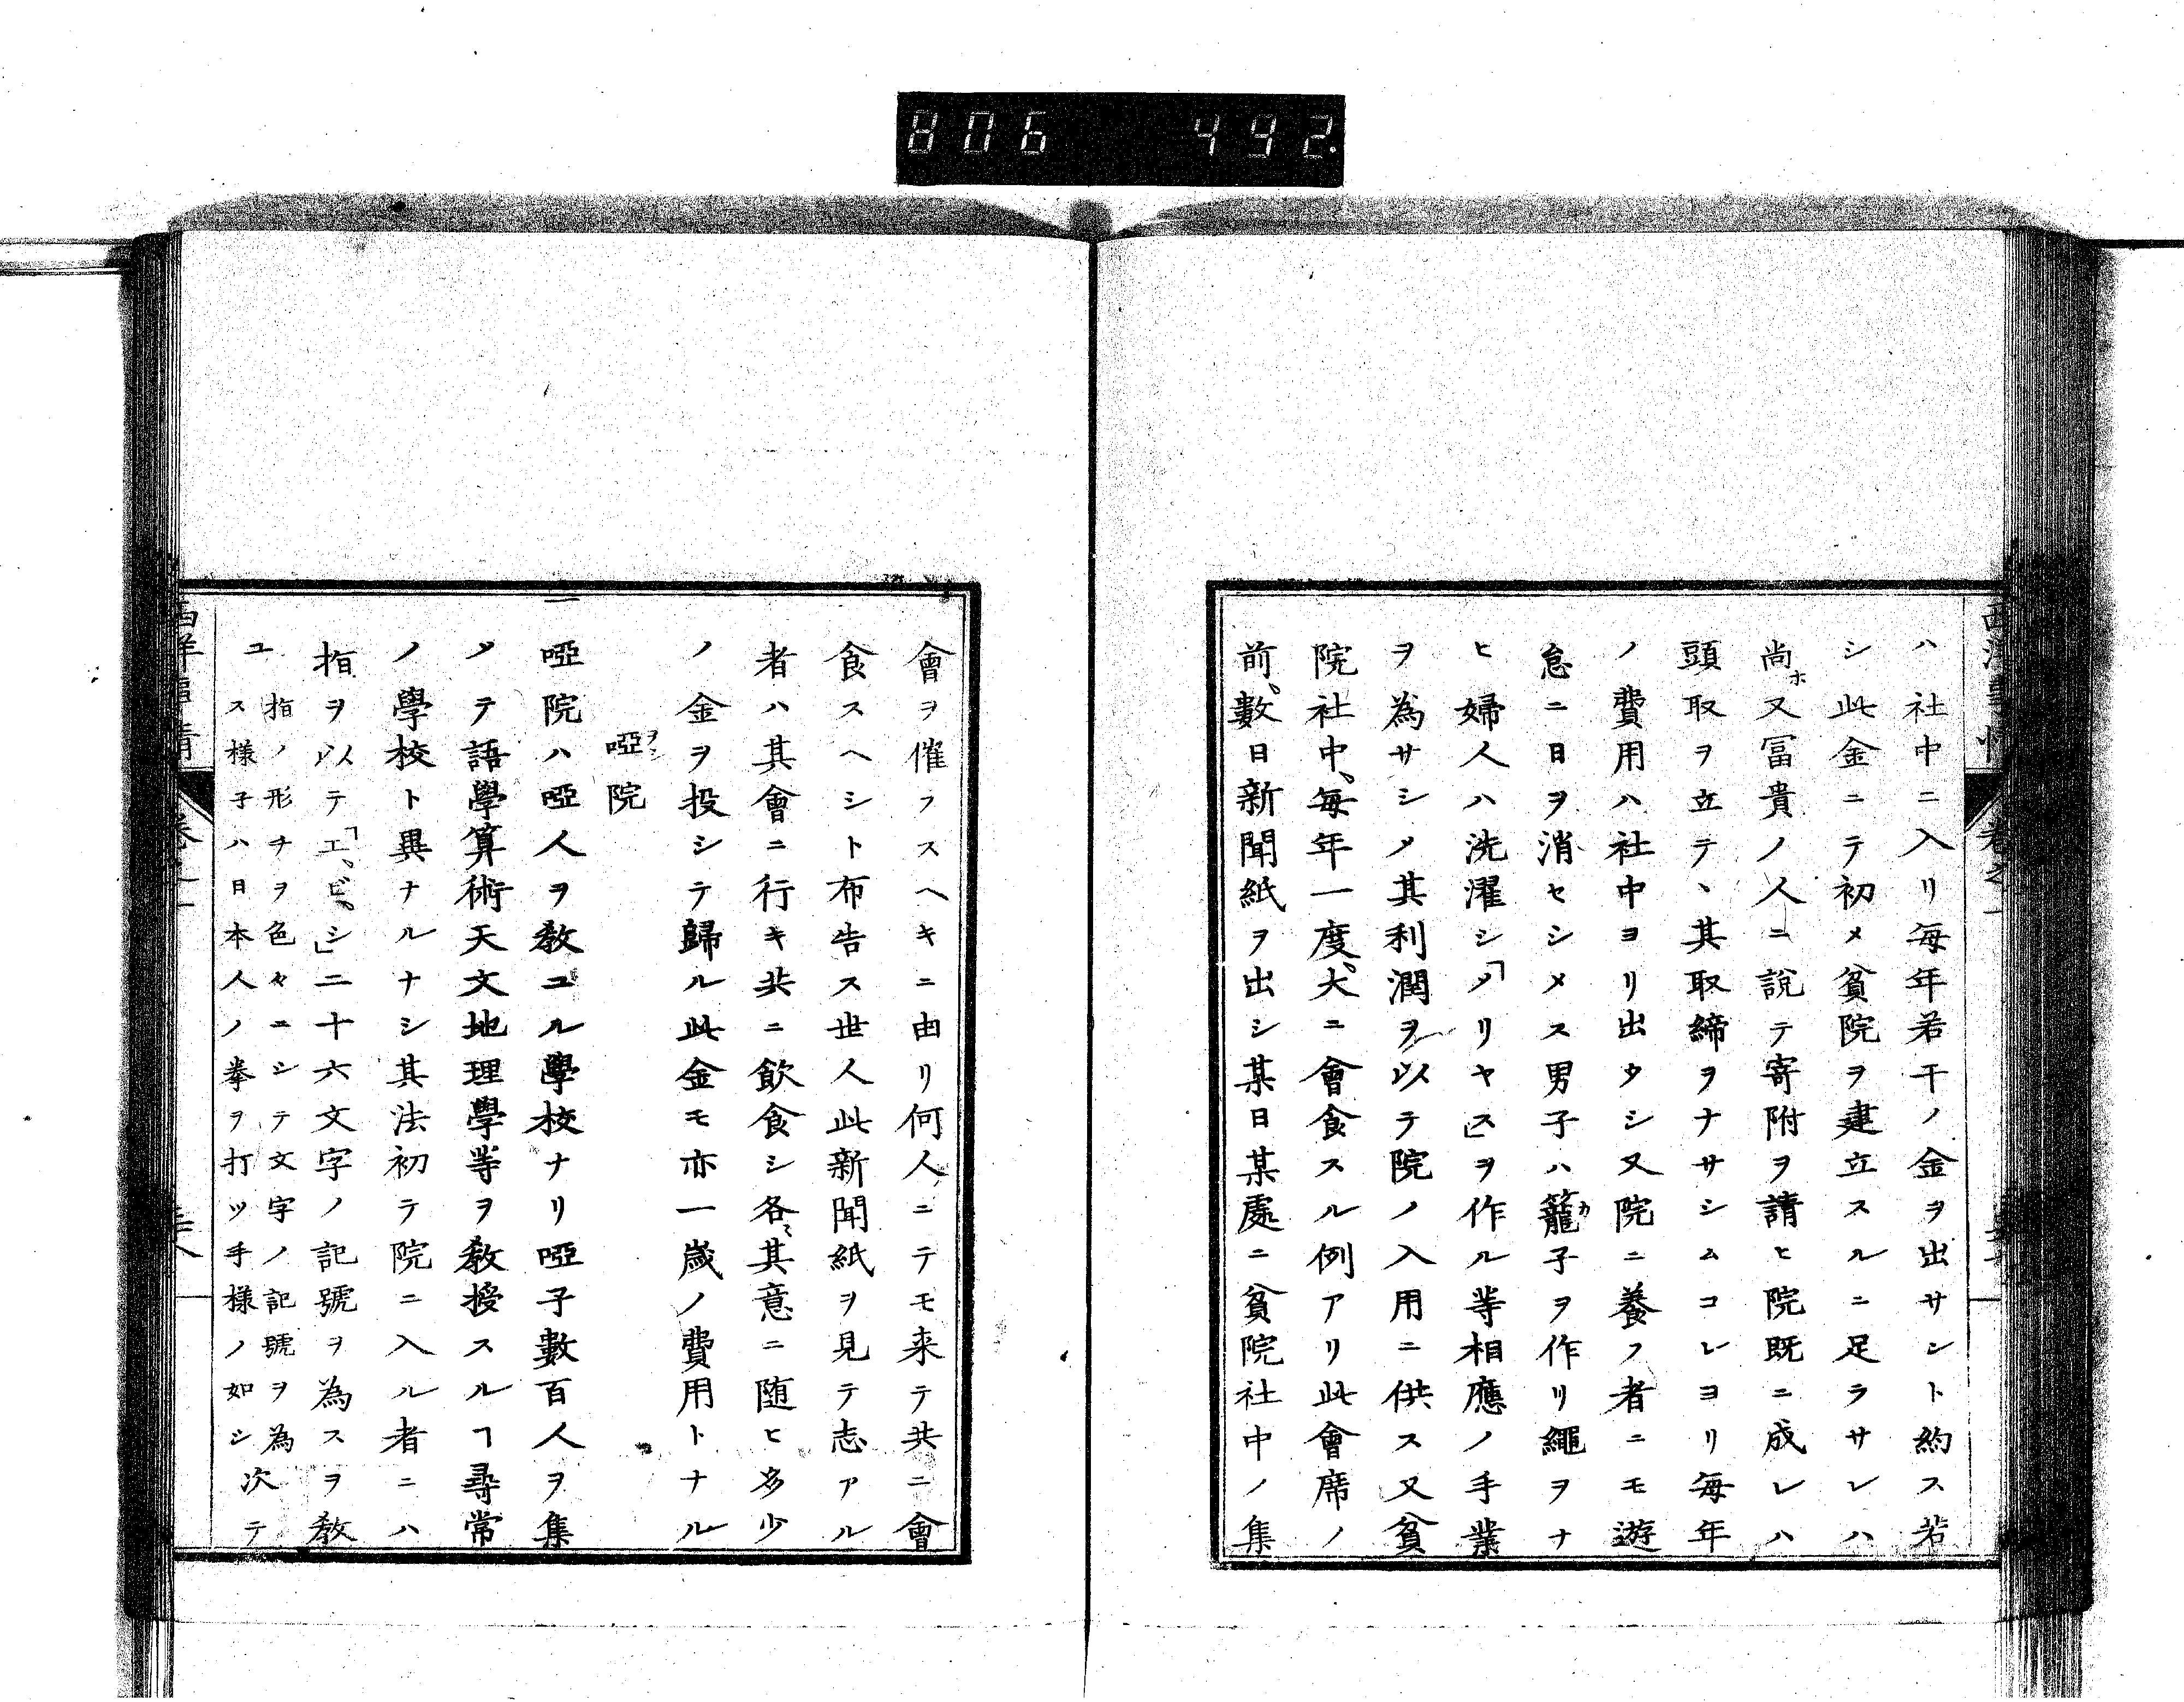 806 492
ハ社中ニ入リ毎年若干ノ金ヲ出サント約ス若
シ此金ニテ初メ貧院ヲ建立スルニ足ラサレハ
尚ホ又冨貴ノ人ニ説テ寄附ヲ請ヒ院既ニ成レハ
頭取ヲ立テヽ其取締ヲナサシムコレヨリ毎年
ノ費用ハ社中ヨリ出タシ又院ニ養フ者ニモ遊
怠ニ日ヲ消セシメス男子ハ籠子ヲ作リ繩ヲナ
ヒ婦人ハ洗濯シ「メリヤス」ヲ作ル等相應ノ手業
ヲ為サシメ其利潤ヲ以テ院ノ入用ニ供ス又貧
院社中、毎年一度、大ニ會食スル例アリ此會席ノ
前、數日新聞紙ヲ出シ某日某處ニ貧院社中ノ集
會ヲ催フスヘキニ由リ何人ニテモ来テ共ニ會
食スヘシト布告ス世人此新聞紙ヲ見テ志アル
者ハ其會ニ行キ共ニ飲食シ各〻其意ニ随ヒ多少
ノ金ヲ投シテ歸ル此金モ亦一歳ノ費用トナル
啞院
一啞院ハ啞人ヲ教ユル學校ナリ啞子數百人ヲ集
メテ語學算術天文地理學等ヲ教授スルヿ尋常
ノ學校ト異ナルナシ其法初テ院ニ入ル者ニハ
指ヲ以テ「エ、ビ、シ」二十六文字ノ記號ヲ為スヲ教
ユ 指ノ形チヲ色々ニシテ文字ノ記號ヲ為
ス様子ハ日本人ノ拳ヲ打ツ手様ノ如シ 次テ
西洋事情 卷之一